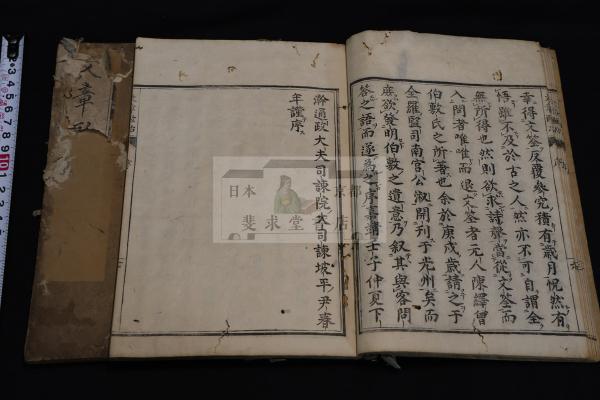 文章
幸得文筌反覆參究積有歲月怳然有
悟雖不及於古之人然亦不可自謂全
無所得也然則欲求詩聲當從文筌而
入問者唯唯而退文筌者元人陳繹曾
伯敷氏之所著也余於庚戌歲請之于
全羅監司南宮公淑開刊于光州矣而
庶欲發明伯敷之遺意乃敘其與客問
答之語而遂為之序嘉靖壬子仲夏下
澣通政大夫司諫院大司諫坡平尹春
年謹序
日本 京都
斐求堂 店